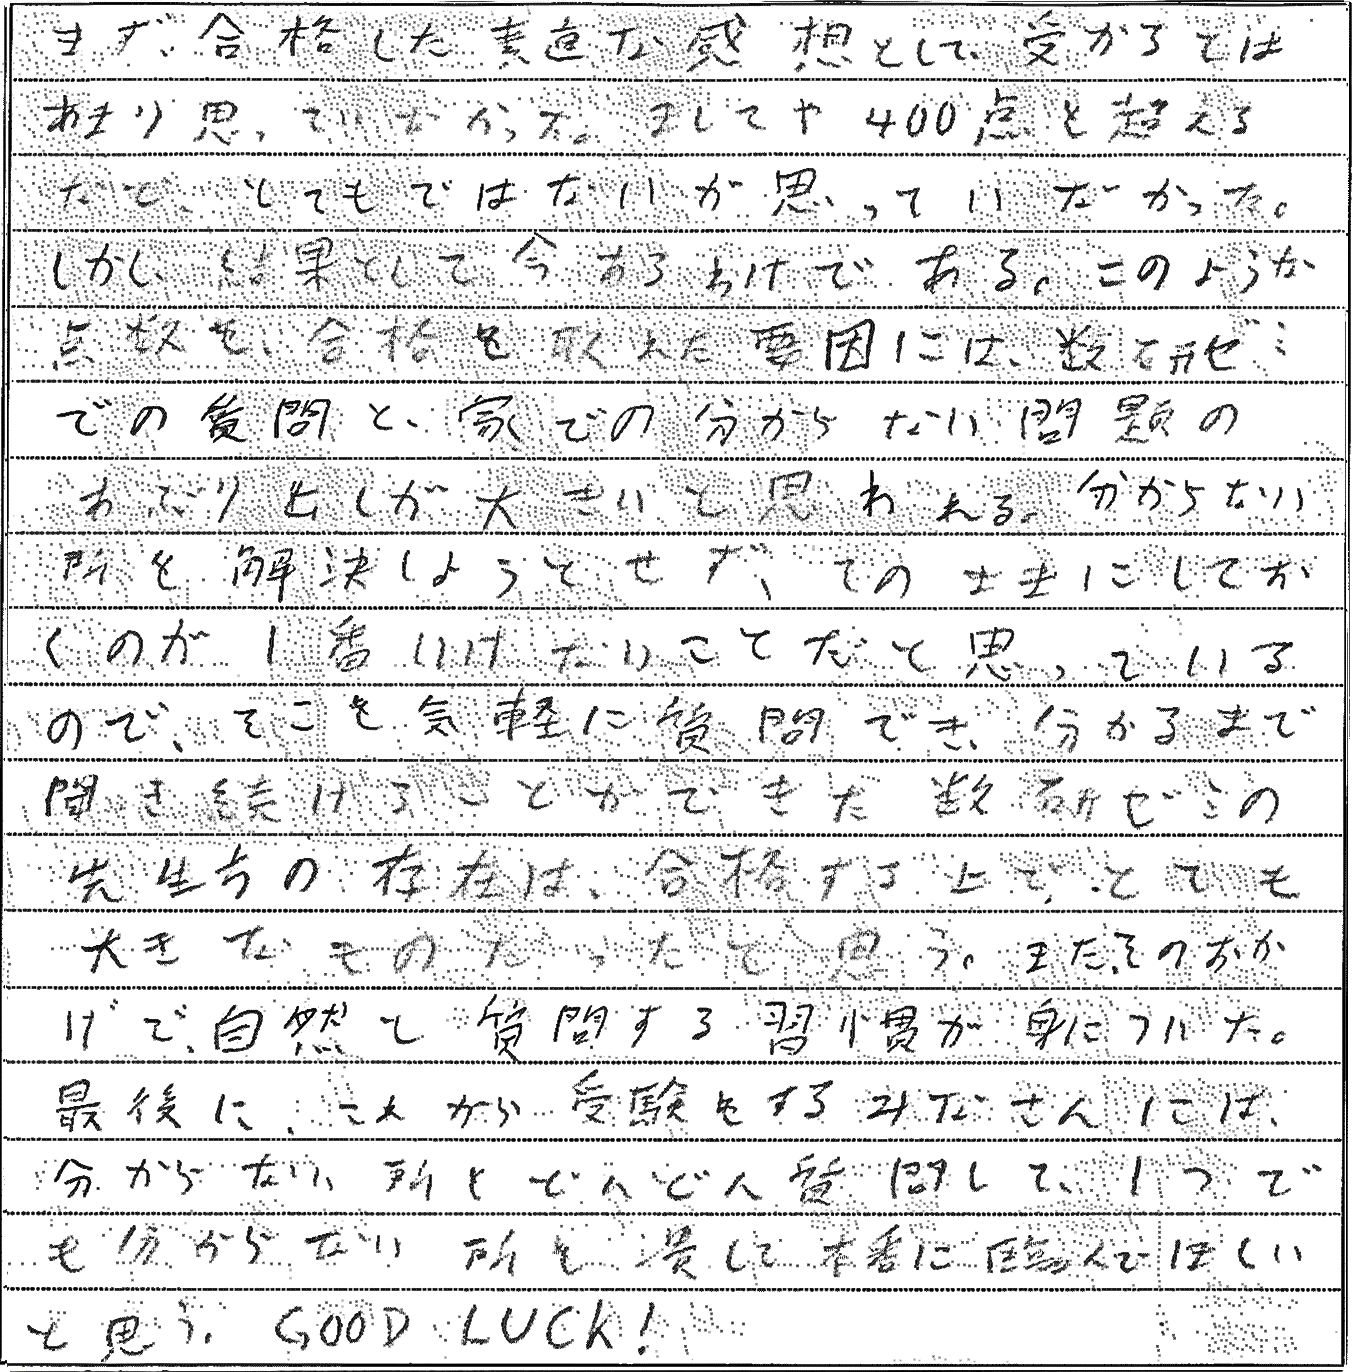 まず、合格した素直な感想として、受かるとは
あまり思っていなかった。ましてや400点を超える
など、とてもではないが思っていなかった。
しかし、結果として今あるわけである。このような
点数を、合格を取れた要因には、数研ゼミ
での質問と、家での分からない問題の
あぶり出しが大きいと思われる。分からない
所を解決しようとせず、そのままにしてお
くのが1番いけないことだと思っている
ので、そこを気軽に質問でき、分かるまで
聞き続けることができた数研ゼミの
先生方の存在は、合格する上で、とても
大きなものだったと思う。また、そのおか
げで、自然と質問する習慣が身についた。
最後に、これから受験をするみなさんには、
分からない所をどんどん質問して、1つで
も分からない所を潰して本番に臨んでほしい
と思う。GOOD LUCK!